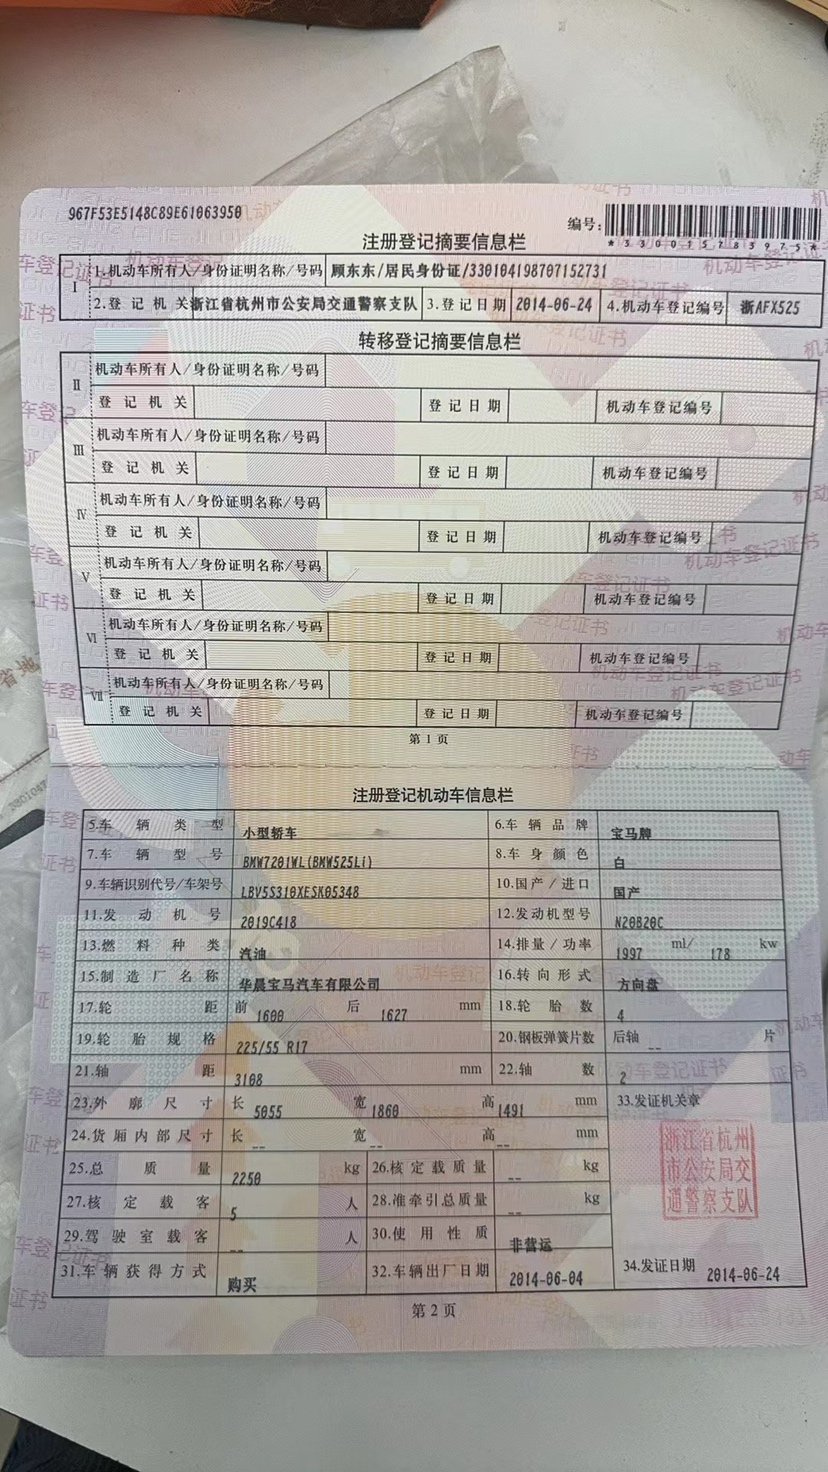 967F53E5148C89E61063950
编号:
*330015783975*
注册登记摘要信息栏
I 1.机动车所有人/身份证明名称/号码 顾东东/居民身份证/330104198707152731
2.登记机关 浙江省杭州市公安局交通警察支队 3.登记日期 2014-06-24 4.机动车登记编号 浙AFX525
转移登记摘要信息栏
II 机动车所有人/身份证明名称/号码
登记机关 登记日期 机动车登记编号
III 机动车所有人/身份证明名称/号码
登记机关 登记日期 机动车登记编号
IV 机动车所有人/身份证明名称/号码
登记机关 登记日期 机动车登记编号
V 机动车所有人/身份证明名称/号码
登记机关 登记日期 机动车登记编号
VI 机动车所有人/身份证明名称/号码
登记机关 登记日期 机动车登记编号
VII 机动车所有人/身份证明名称/号码
登记机关 登记日期 机动车登记编号
第1页
注册登记机动车信息栏
5.车辆类型 小型轿车 6.车辆品牌 宝马牌
7.车辆型号 BMW7201WL(BMW525Li) 8.车身颜色 白
9.车辆识别代号/车架号 LBV5S310XESK05348 10.国产/进口 国产
11.发动机号 2019C418 12.发动机型号 N20B20C
13.燃料种类 汽油 14.排量/功率 1997 ml/ 178 kw
15.制造厂名称 华晨宝马汽车有限公司 16.转向形式 方向盘
17.轮距 前 1600 后 1627 mm 18.轮胎数 4
19.轮胎规格 225/55 R17 20.钢板弹簧片数 后轴 -- 片
21.轴距 3108 mm 22.轴数 2
23.外廓尺寸 长 5055 宽 1860 高 1491 mm 33.发证机关章
24.货厢内部尺寸 长 -- 宽 -- 高 -- mm
浙江省杭州
市公安局交
通警察支队
25.总质量 2250 kg 26.核定载质量 -- kg
27.核定载客 5 人 28.准牵引总质量 -- kg
29.驾驶室载客 -- 人 30.使用性质 非营运
31.车辆获得方式 购买 32.车辆出厂日期 2014-06-04 34.发证日期 2014-06-24
第2页